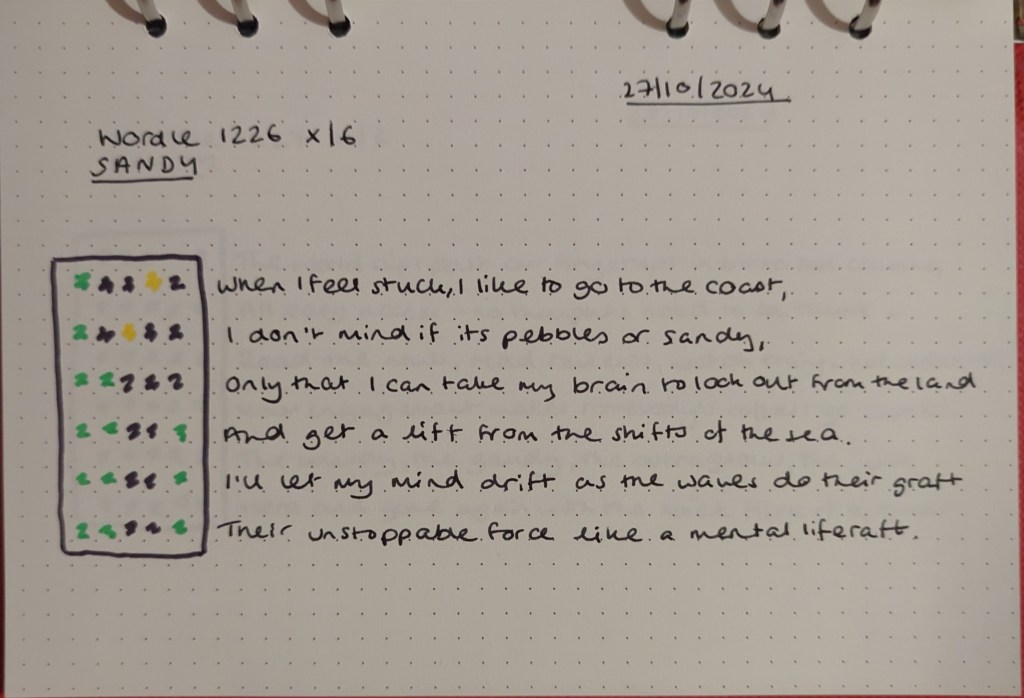 27/10/2024
Wordle 1226 X/6
SANDY
When I feel stuck, I like to go to the coast,
I don't mind if its pebbles or sandy,
Only that I can take my brain to look out from the land
And get a lift from the shifts of the sea.
I'll let my mind drift as the waves do their graft
Their unstoppable force like a mental liferaft.